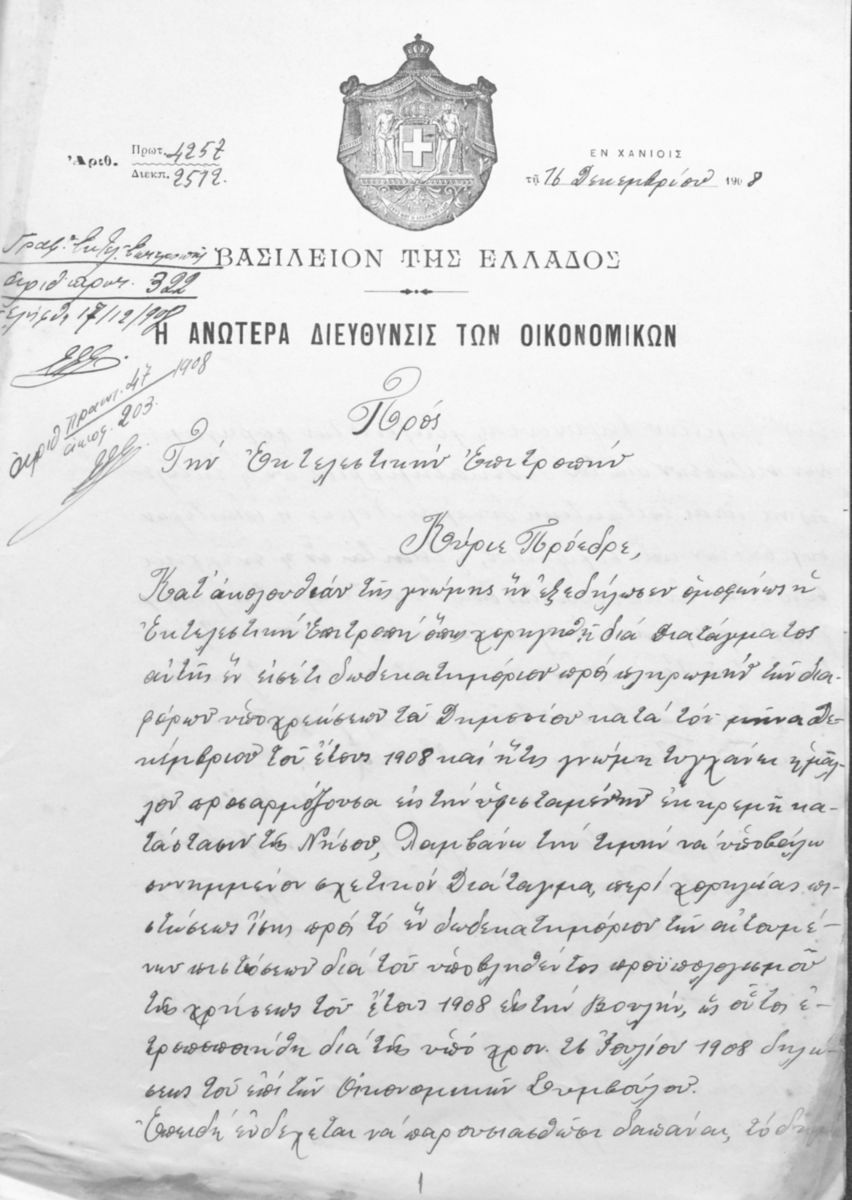 Ἀριθ. Πρωτ. 4257
Διεκπ. 2512.
ΕΝ ΧΑΝΙΟΙΣ
τῇ 16 Δεκεμβρίου 1908
Γραφ. Ἐκτελ. Ἐπιτροπῆς
ἀριθ. πρωτ. 322
17/12/908
ΒΑΣΙΛΕΙΟΝ ΤΗΣ ΕΛΛΑΔΟΣ
Η ΑΝΩΤΕΡΑ ΔΙΕΥΘΥΝΣΙΣ ΤΩΝ ΟΙΚΟΝΟΜΙΚΩΝ
ἀριθ. πρακτ. 47 1908
203.
Πρός
Τὴν Ἐκτελεστικὴν Ἐπιτροπὴν
Κύριε Πρόεδρε,
Κατ' ἀκολουθίαν τῆς γνώμης ἣν ἐξεδήλωσεν ὁμοφώνως ἡ
Ἐκτελεστικὴ Ἐπιτροπὴ ὅπως χορηγηθῇ διὰ Διατάγματος
αὐτῆς ἓν εἰσέτι δωδεκατημόριον πρὸς πληρωμὴν τῶν δια-
φόρων ὑποχρεώσεων τοῦ Δημοσίου κατὰ τὸν μῆνα Δε-
κέμβριον τοῦ ἔτους 1908 καὶ ἥτις γνώμη τυγχάνει ἡ μᾶλ-
λον προσαρμόζουσα εἰς τὴν ὑφισταμένην ἐκκρεμῆ κα-
τάστασιν τῆς Νήσου, Λαμβάνω τὴν τιμὴν νὰ ὑποβάλω
συνημμένον σχετικὸν Διάταγμα, περὶ χορηγίας πι-
στώσεως ἴσης πρὸς τὸ ἓν δωδεκατημόριον τῶν αἰτουμέ-
νων πιστώσεων διὰ τοῦ ὑποβληθέντος προϋπολογισμοῦ
τῆς χρήσεως τοῦ ἔτους 1908 εἰς τὴν Βουλήν, ὡς οὗτος ἐ-
τροποποιήθη διὰ τῆς ὑπὸ χρον. 26 Ἰουλίου 1908 δηλώ-
σεως τοῦ ἐπὶ τῶν Οἰκονομικῶν Συμβούλου.
Ἐπειδὴ ἐνδέχεται νὰ παρουσιασθῶσι δαπάναι, τὸ
1